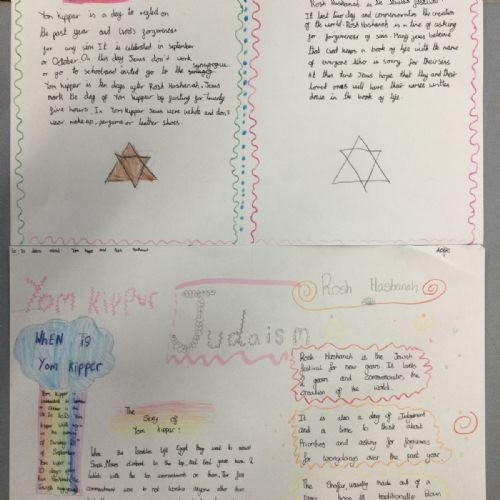 Yom Kippur is a day to reflect on
the past year and God's forgiveness
for any sin. It is celebrated in september
or October. On this day Jews don't work
synagogue
or go to school and instead go to the
Yom Kippur is ten days after Rosh Hashanah. Jews
mark the day of Yom Kippur by fasting for twenty
five hours. In Yom Kippur Jews wear white and don't
wear make up, perfume or leather shoes.
Rosh Hashanah is the Jewish
It last four day and commemorates the creation
of the world. Rosh Hashanah is a time of asking
for forgiveness of sins. Many Jews believe
that God keeps a book of life with the name
of everyone who is sorry for their sins
At this time Jews hope that they and their
loved ones will have their names written
down in the book of life.
Yom Kippur and Rosh Hashanah
Yom Kippur
Judaism
Rosh Hashanah
WhEN is
Yom Kipper
Yom Kipper is
celebrated in September
or October
of September
Yom Kipper
The
Story of
Yom Kippur:
When the Israelites left Egypt they went to mount
Sinai. Moses climbed to the top, and God gave him 2
which with the ten commandments on them. The first
commandment was to not worship anyone other than
Rosh Hashanah is the Jewish
festival for new years. It lasts
2 years and commemorates the
creation of the world.
It is also a day of Judgement
and a time to think about
Priorities and asking for forgiveness
for wrongdoings over the past year
The Shofar, usually made out of a
horn is traditionally blown